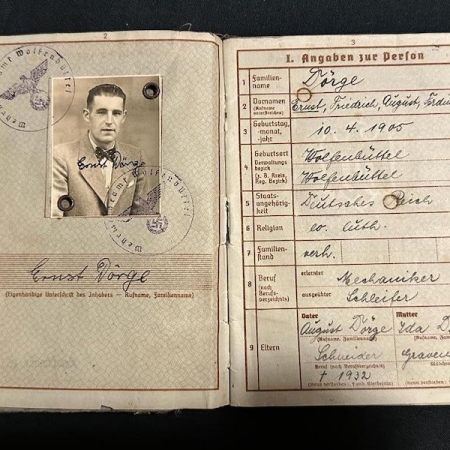 2
Wehrmeldeamt Wolfenbüttel
Ernst Dörge
Wehrmeldeamt Wolfenbüttel
Ernst Dörge
(Eigenhändige Unterschrift des Inhabers — Rufname, Familienname)
3
I. Angaben zur Person
1 Familien-
name
Dörge
2 Vornamen
(Rufname
unterstreichen)
Ernst, Friedrich, August,
3 Geburtstag,
-monat,
-jahr
10. 4. 1905
4 Geburtsort
Verwaltungs-
bezirk
(z. B. Kreis,
Reg. Bezirk)
Wolfenbüttel
Wolfenbüttel
5 Staats-
angehörig-
keit
Deutsches Reich
6 Religion
ev. luth.
7 Familien-
stand
verh.
8 Beruf
(nach
Berufs-
verzeichnis)
erlernter
Mechaniker
ausgeübter
Schleifer
9 Eltern
Vater
August Dörge
(Rufname, Familienname)
Schneider
Beruf (nach Berufsverzeichnis)
† 1932
Mutter
Ida D
(Rufname,